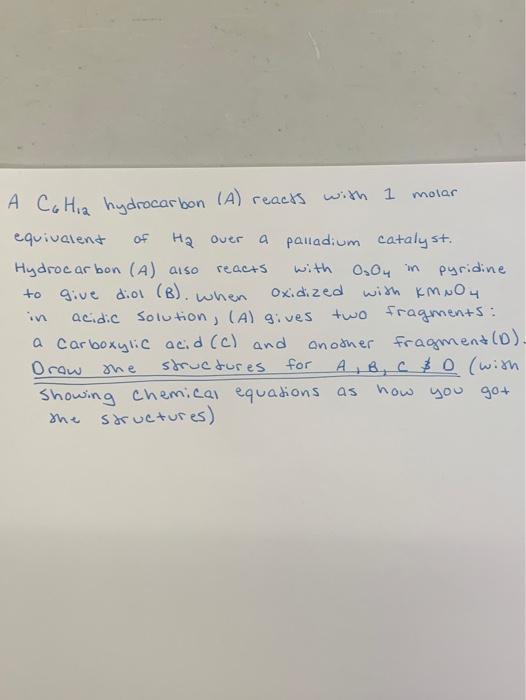 A C6H12 hydrocarbon (A) reacts with 1 molar
equivalent of H2 over a palladium catalyst.
Hydrocarbon (A) also reacts with OsO4 in pyridine
to give diol (B). when oxidized with KMnO4
in acidic solution, (A) gives two fragments:
a carboxylic acid (C) and another fragment (D).
Draw the structures for A, B, C & D (with
showing chemical equations as how you got
the structures)